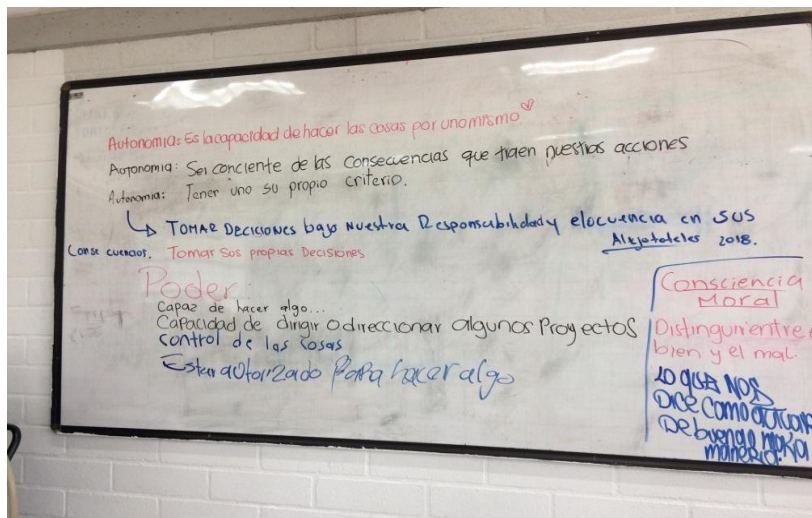 Autonomia: Es la capacidad de hacer las cosas por uno mismo
Autonomia: Sei conciente de las consecuencias que traen nuestras acciones
Autonomia: Tener uno su propio criterio.
↳ TOMAR DECISIONES bajo Nuestra Responsabilidad y elocuencia en sus
Consecuencias. Tomar sus propias Decisiones
2018.
Poder:
Capaz de hacer algo...
Capacidad de dirigir o direccionar algunos Proyectos
control de las cosas
Estar autorizado Para hacer algo
Consciencia
Moral
Distinguir entre
bien y el mal.
LO QUE NOS
DICE COMO
De buena o mala
manera.